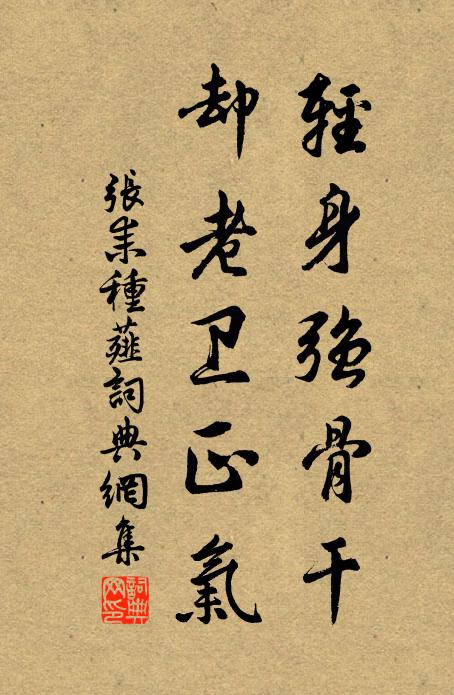 輕身強骨干
却老卫正氣
張耒種薤詞典網集
詞典網印